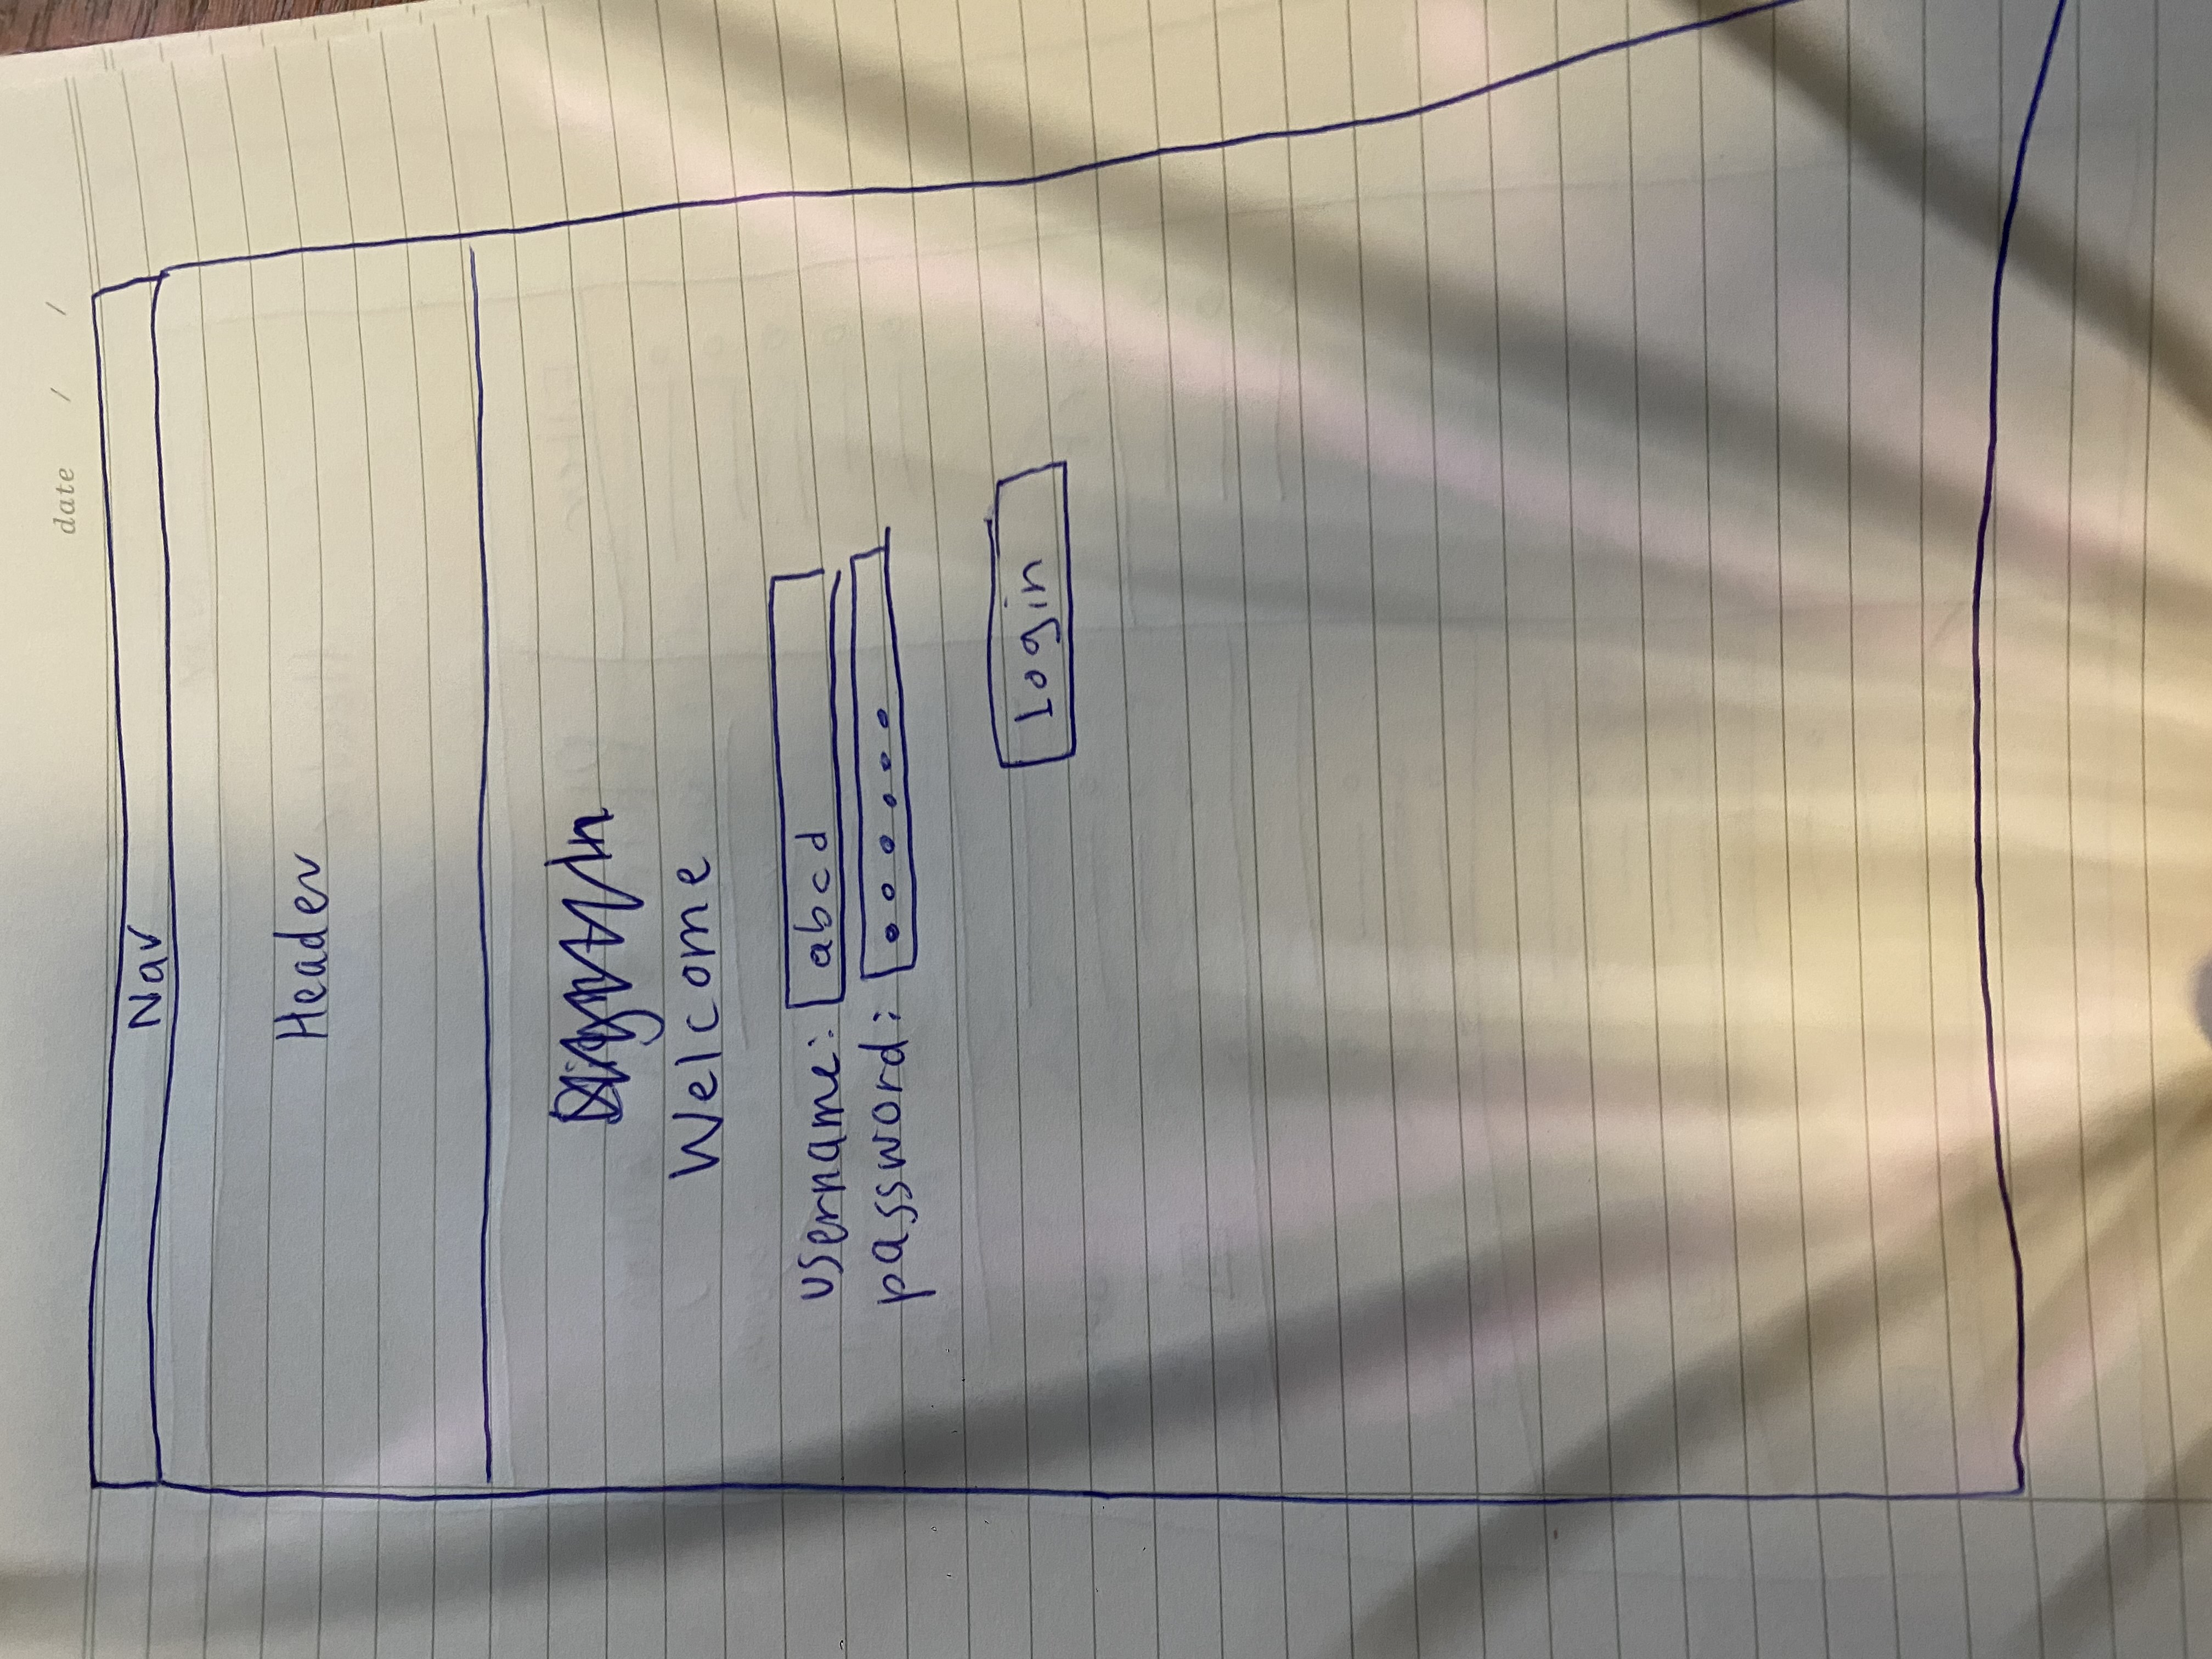 date / /
Nav
Header
Welcome
username: abcd
password: ••••••
Login